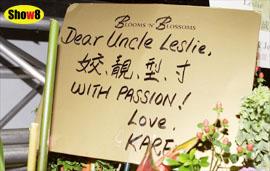 Show8
Leslie
BLOOMS 'N' BLOSSOMS
Dear Uncle Leslie,
姣、靚、型、寸
WITH PASSION!
Love,
KARE